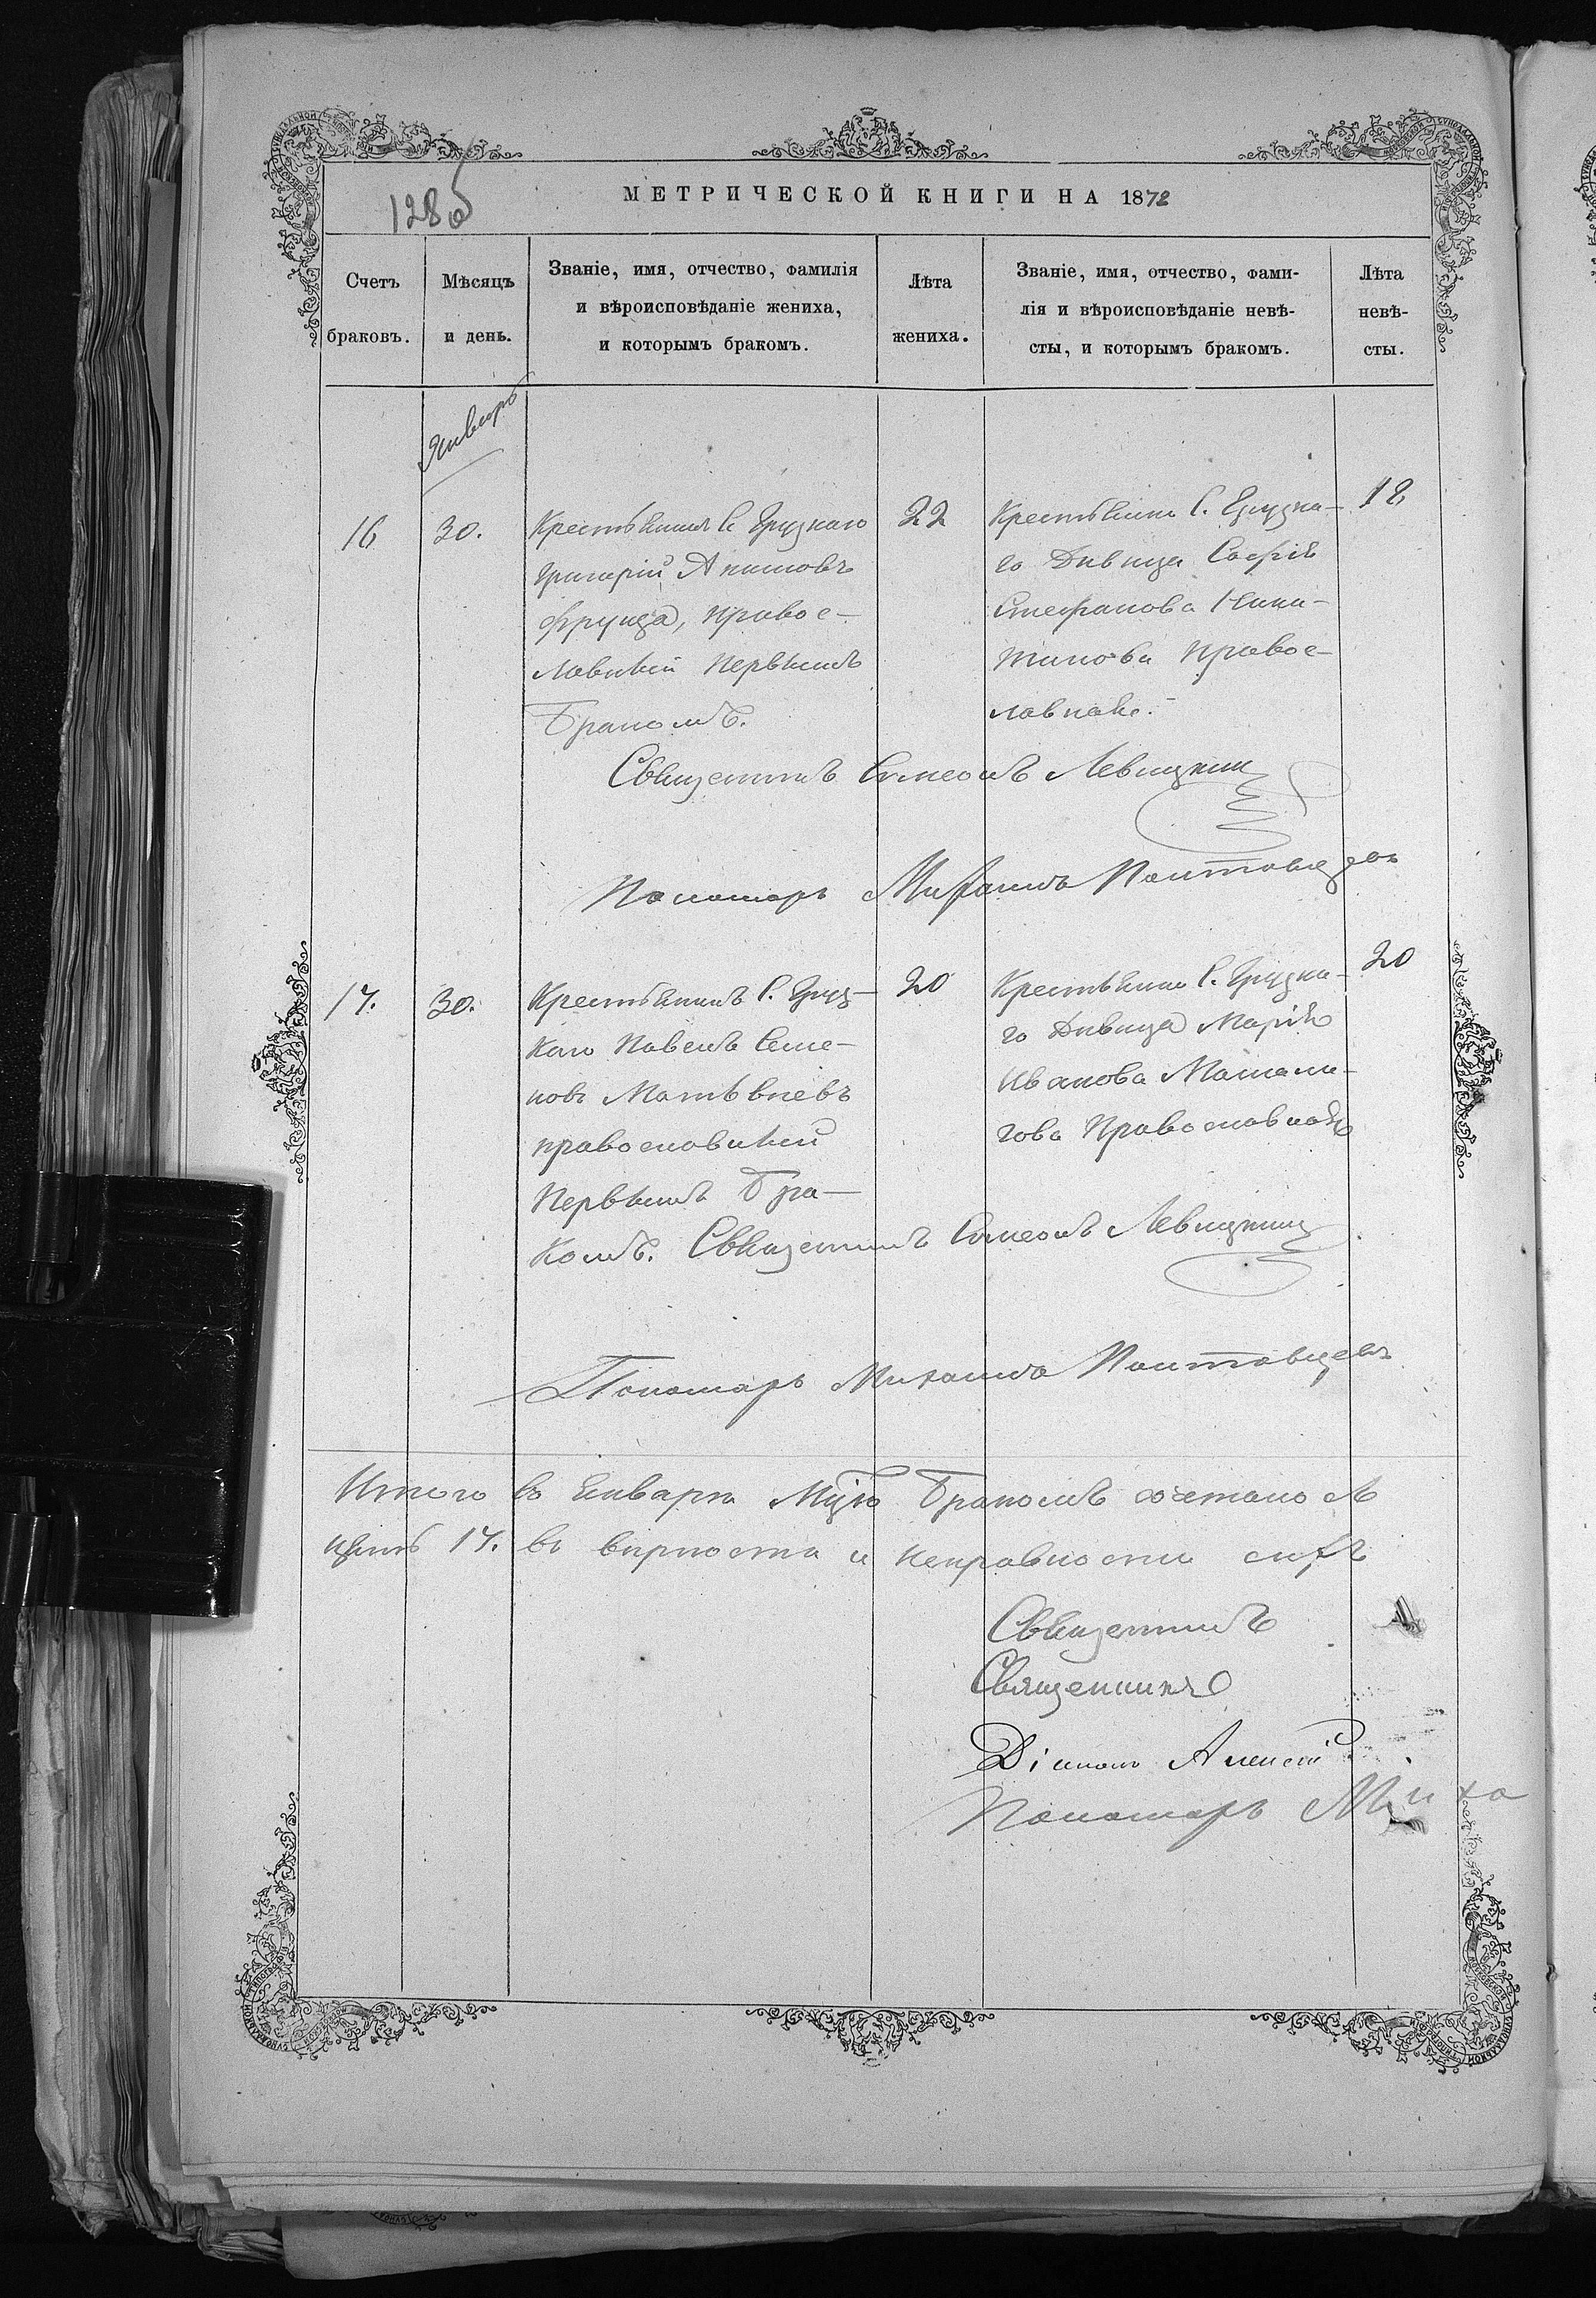 128 об
МЕТРИЧЕСКОЙ КНИГИ НА 1872
Счетъ браковъ.
Мѣсяцъ и день.
Званіе, имя, отчество, фамилія
и вѣроисповѣданіе жениха,
и которымъ бракомъ.
Лѣта жениха.
Званіе, имя, отчество, фами-
лія и вѣроисповѣданіе невѣ-
сты, и которымъ бракомъ.
Лѣта невѣ-
сты.
Январь
16
30.
Крестьянинъ С. Грузкаго
Григорій Акимовъ
православ-
ный первымъ
бракомъ.
22
Крестьянка С. Грузка-
го Дѣвица Софія
Стефанова Ники-
тинова правос-
лавная.
18
Священникъ Симеонъ Левицкій
Пономарь Михаилъ Полтавцевъ
17.
30.
Крестьянинъ С. Груз-
каго Павелъ Семе-
новъ Матвѣевъ
православный
первымъ бра-
комъ.
20
Крестьянка С. Грузка-
го Дѣвица Марія
Иванова
Православная
20
Священникъ Симеонъ Левицкій
Пономарь Михаилъ Полтавцевъ
Итого въ Январѣ Мцѣ бракомъ сочетано
17. въ вѣрности и исправности сихъ
Священникъ
Священникъ
Діаконъ Алексій
Пономарь Миха